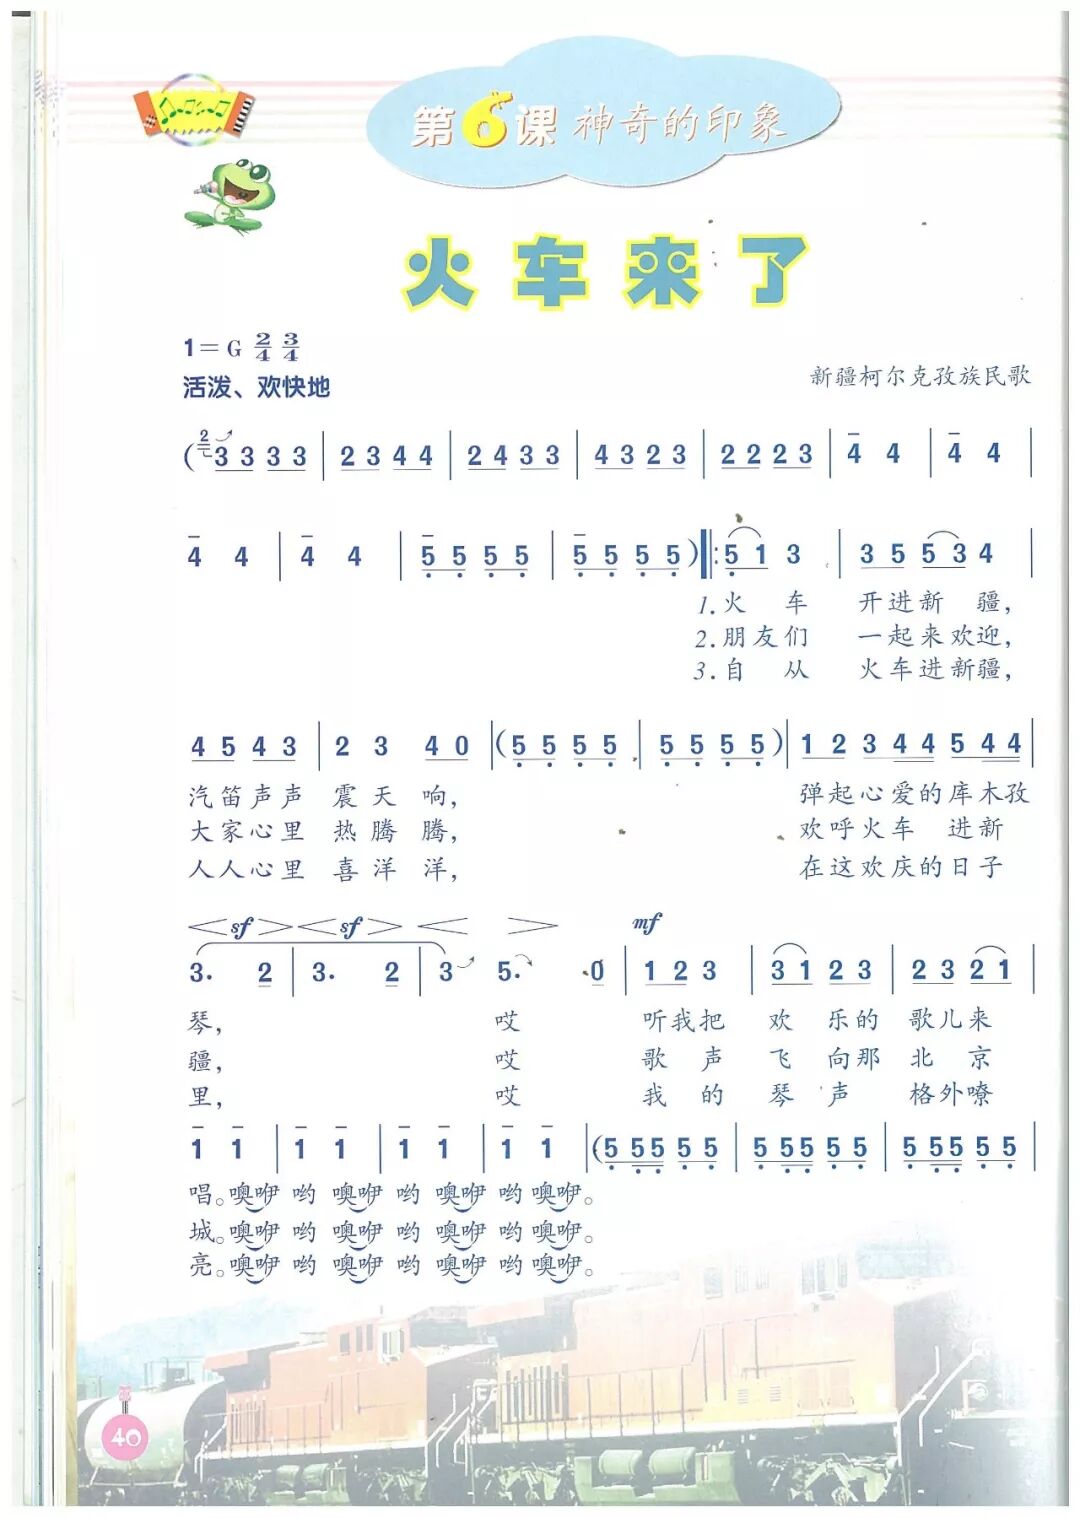 第6课 神奇的印象
火车来了
1=G 2/4 3/4
活泼、欢快地
新疆柯尔克孜族民歌
( 2 3 3 3 3 | 2 3 4 4 | 2 4 3 3 | 4 3 2 3 | 2 2 2 3 | 4 4 | 4 4 |
4 4 | 4 4 | 5 5 5 5 | 5 5 5 5 ) ‖: 5 1 3 | 3 5 5 3 4 |
1.火 车 开进新 疆,
2.朋友们 一起来欢迎,
3.自 从 火车进新疆,
4 5 4 3 | 2 3 4 0 | ( 5 5 5 5 | 5 5 5 5 ) | 1 2 3 4 4 5 4 4 |
汽笛声声 震天 响, 弹起心爱的库木孜
大家心里 热腾 腾, 欢呼火车 进新
人人心里 喜洋 洋, 在这欢庆的日子
sf sf mf
3. 2 | 3. 2 | 3 5. 0 | 1 2 3 | 3 1 2 3 | 2 3 2 1 |
琴, 哎 听我把 欢 乐的 歌儿来
疆, 哎 歌 声 飞 向那 北 京
里, 哎 我 的 琴 声 格外嘹
1 1 | 1 1 | 1 1 | 1 1 | ( 5 5 5 5 5 | 5 5 5 5 5 | 5 5 5 5 5 |
唱。噢咿 哟 噢咿 哟 噢咿 哟 噢咿。
城。噢咿 哟 噢咿 哟 噢咿 哟 噢咿。
亮。噢咿 哟 噢咿 哟 噢咿 哟 噢咿。
40